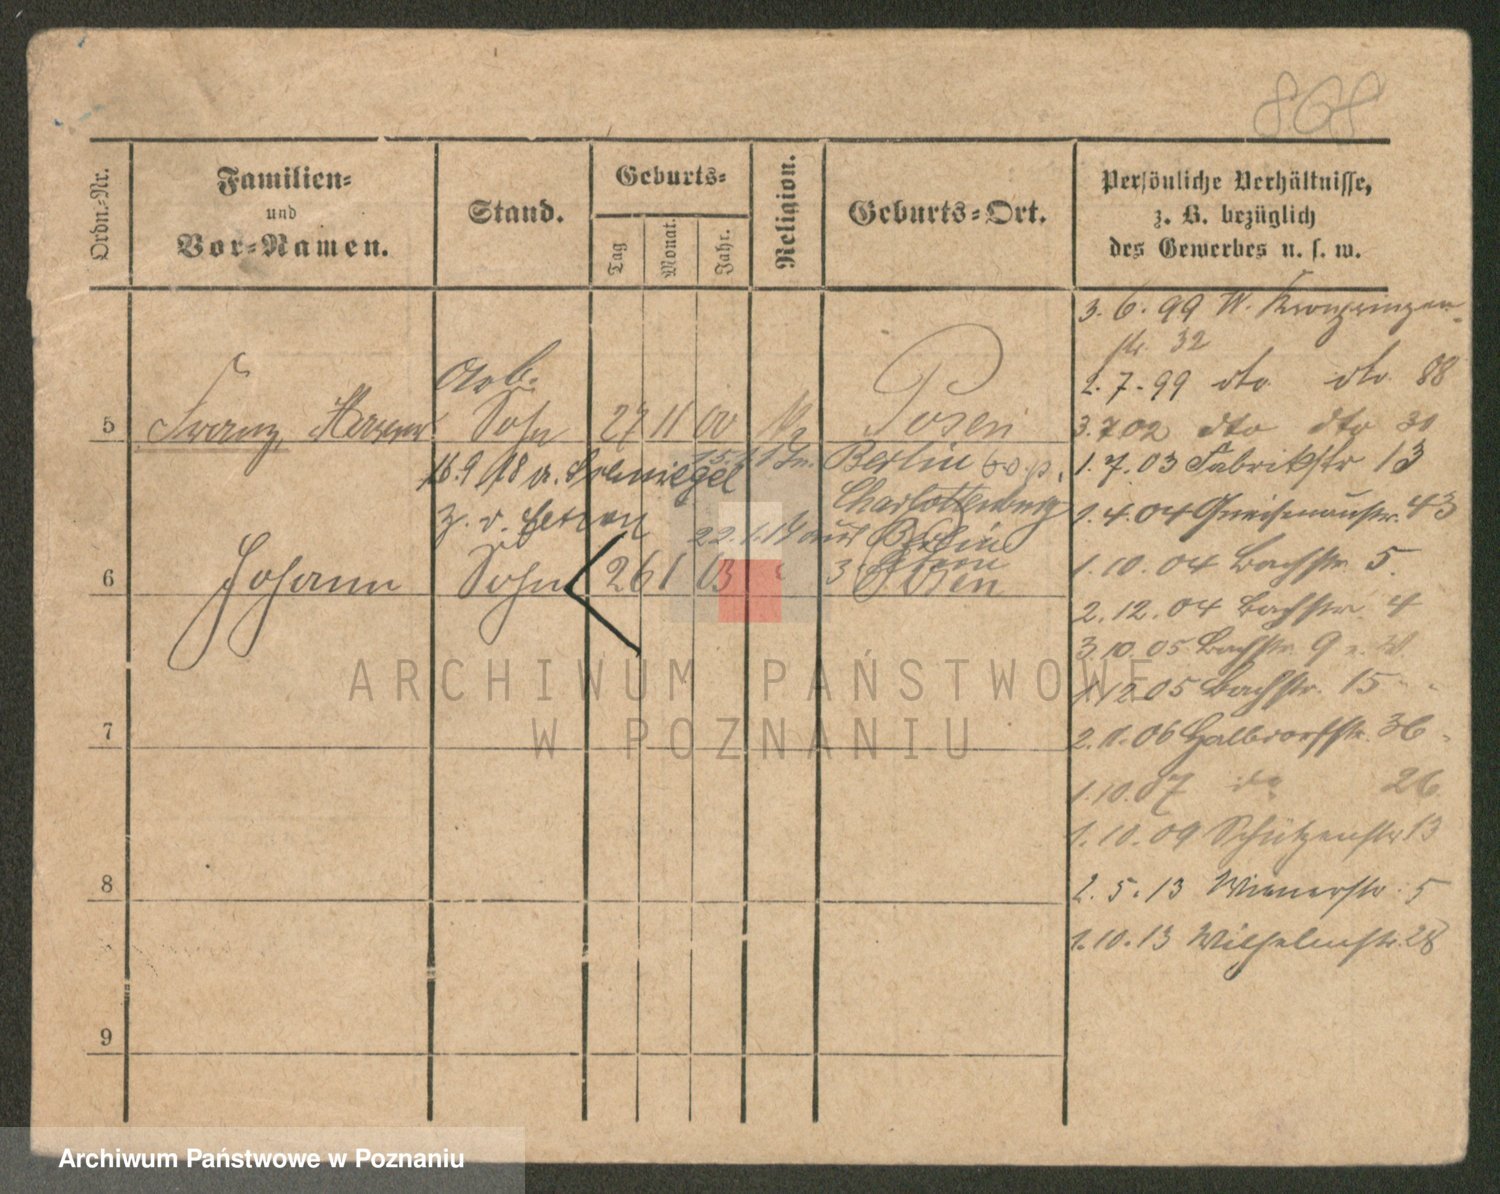 868
Ordn.-Nr.
Familien-
und
Vor-Namen.
Stand.
Geburts-
Tag
Monat.
Jahr.
Religion.
Geburts-Ort.
Persönliche Verhältnisse,
z. B. bezüglich
des Gewerbes u. s. w.
3. 6. 99 W. Kronprinzen-
str. 32
2. 7. 99 dto dto 88
Arb.
5 Franz, Sohn 27 11 00 Posen
3.7 02 dto dto
16.9 18 a. Berlin
1. 7. 03 Fabrikstr 13
Charlottenburg
1. 4. 04 Gneisenaustr. 43
z. v. 22.1.19 aus Berlin
6 Johann Sohn 26 1 03 Posen
1. 10. 04 Bachstr. 5.
2. 12. 04 Bachstr. 4
3 10. 05 Bachstr. 9
12.05 Bachstr. 15
7
2. 1. 06 36
1. 10. 07 do 26
1. 10. 09 Schützenstr 13
8
2. 5. 13 Wienerstr. 5
1. 10. 13 Wilhelmstr. 28
9
ARCHIWUM PAŃSTWOWE
W POZNANIU
Archiwum Państwowe w Poznaniu